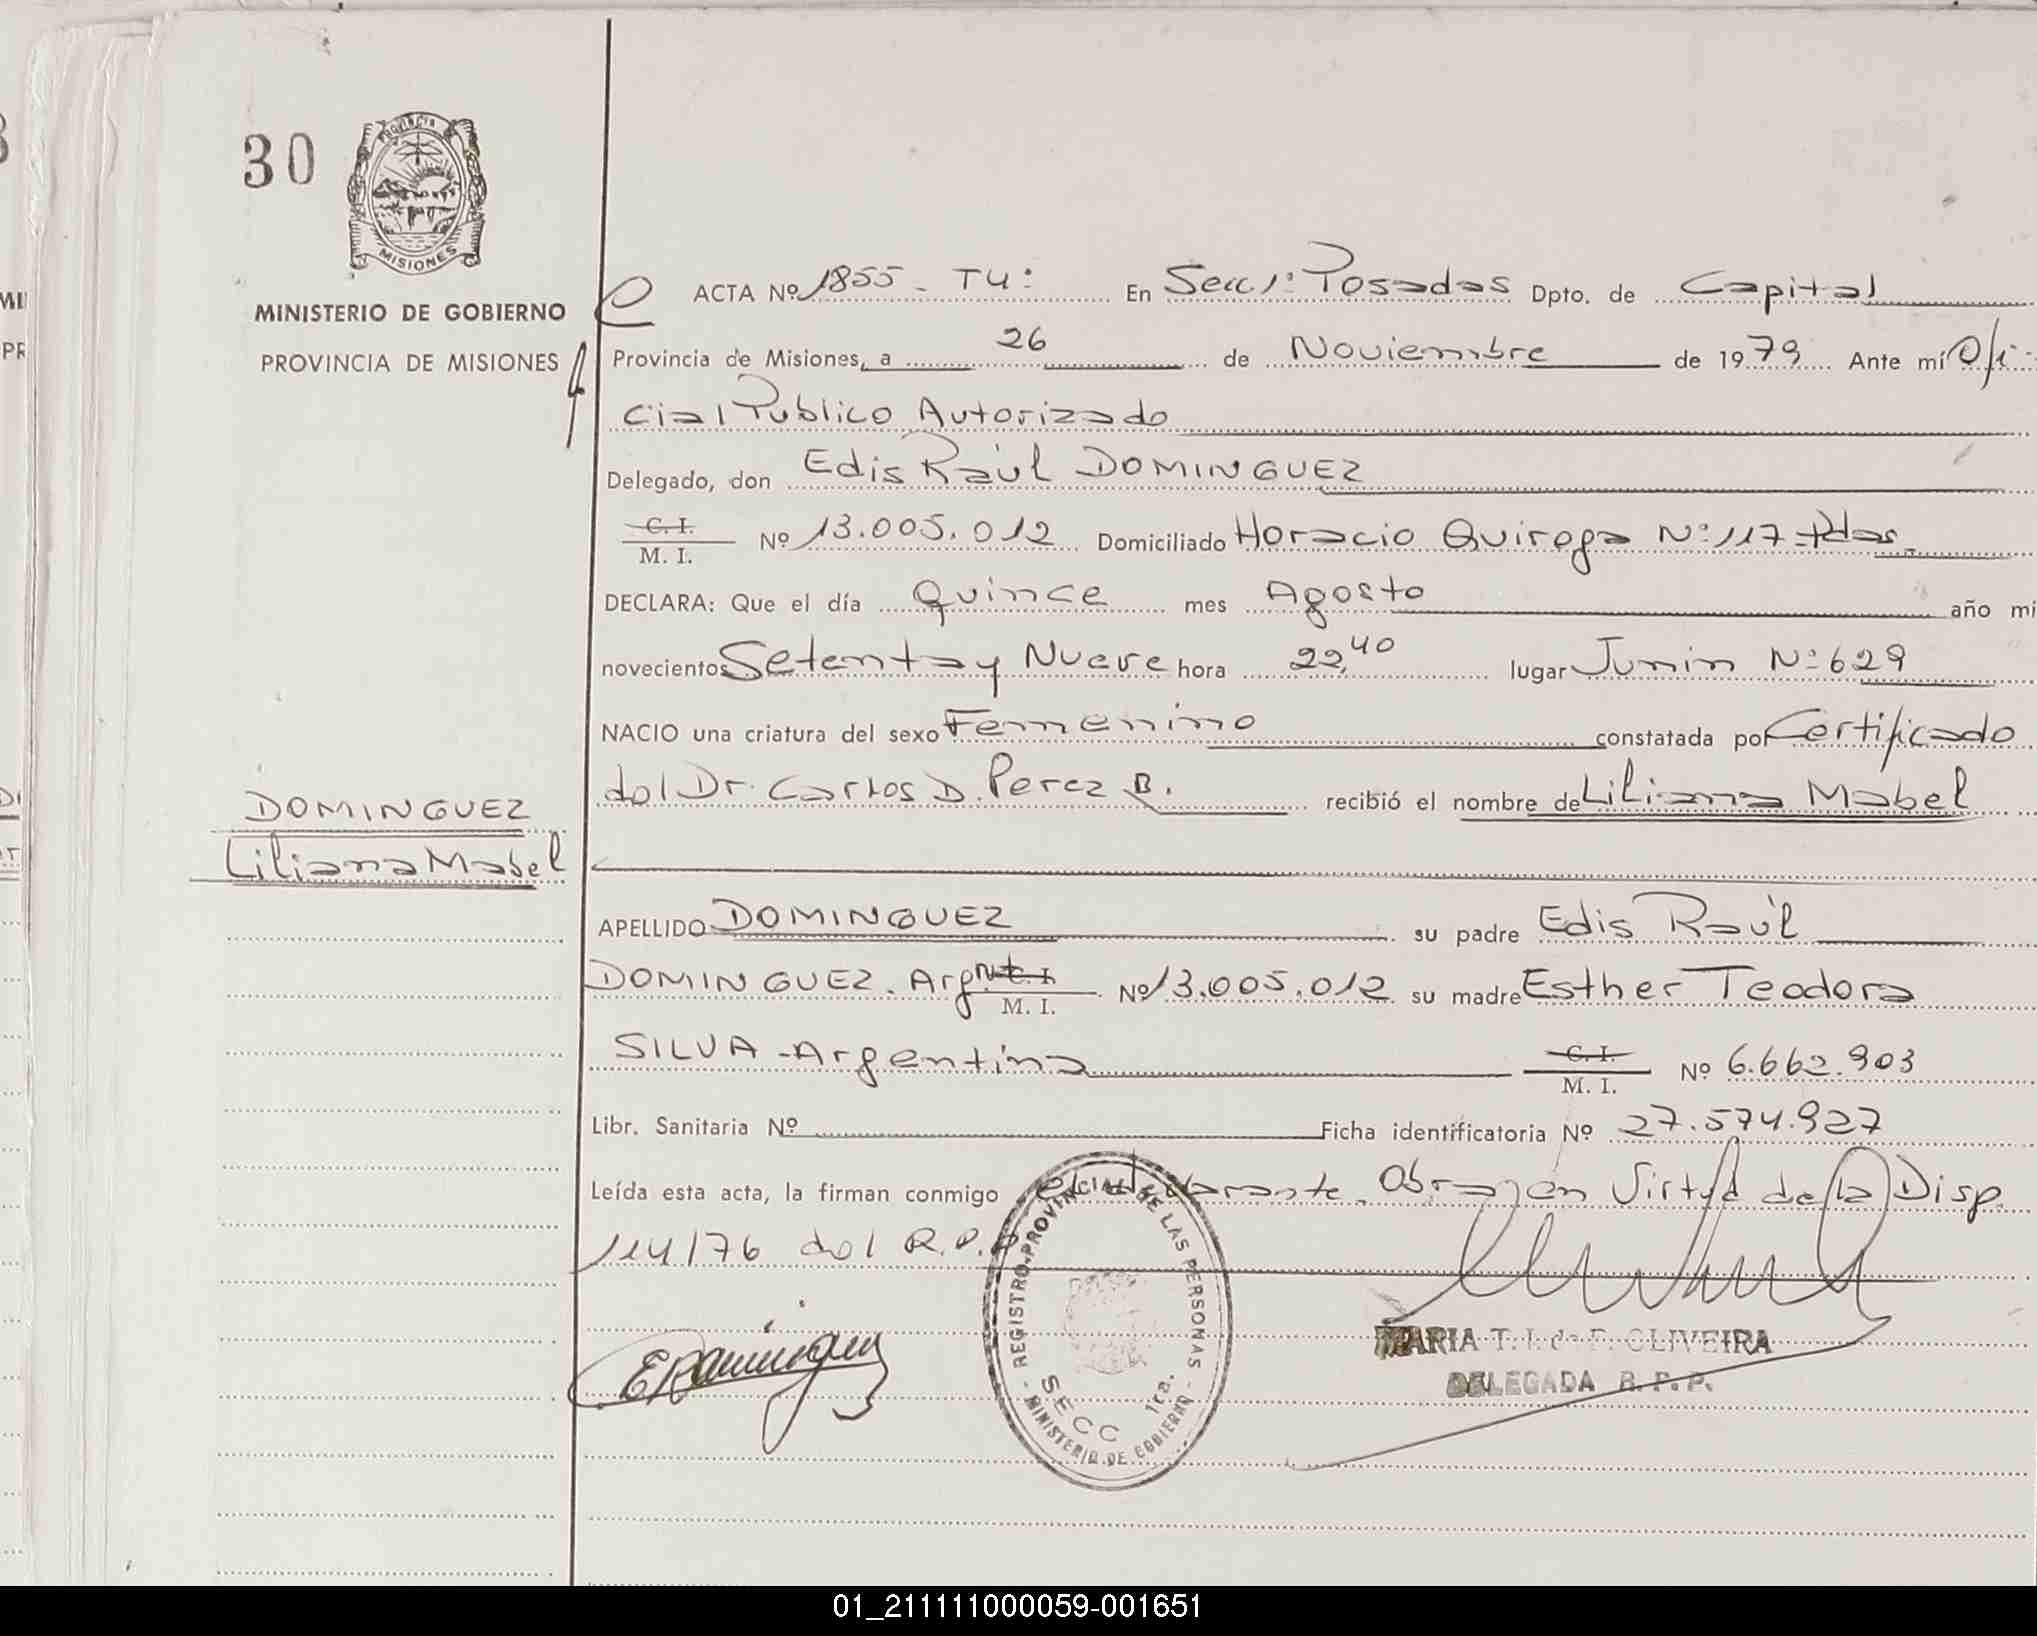 30
PROVINCIA
MISIONES
MINISTERIO DE GOBIERNO
PROVINCIA DE MISIONES
ACTA Nº 1855 - T4: En Secc 1ª: Posadas Dpto. de Capital
Provincia de Misiones, a 26 de Noviembre de 1979 Ante mí Ofi-
cial Publico Autorizado
Delegado, don Edis Raúl DOMINGUEZ
C. I.
M. I. Nº 13.005.012 Domiciliado Horacio Quiroga Nº 117 - Pdas.
DECLARA: Que el día Quince mes Agosto año mi
novecientos Setenta y Nueve hora 22,40 lugar Junin Nº 629
NACIO una criatura del sexo Femenino constatada por Certificado
del Dr. Carlos D. Perez B. recibió el nombre de Liliana Mabel
DOMINGUEZ
Liliana Mabel
APELLIDO DOMINGUEZ su padre Edis Raúl
DOMINGUEZ. Argnt. C. I.
M. I. Nº 13.005.012 su madre Esther Teodora
SILVA - Argentina C. I.
M. I. Nº 6.662.903
Libr. Sanitaria Nº Ficha identificatoria Nº 27.574.927
Leída esta acta, la firman conmigo el declarante. Obra en Virtud de la Disp.
114/76 del R.P.P.
REGISTRO PROVINCIAL DE LAS PERSONAS
SECC 1ra.
MINISTERIO DE GOBIERNO
MARIA T. I. de F. OLIVEIRA
DELEGADA R. P. P.
01_211111000059-001651